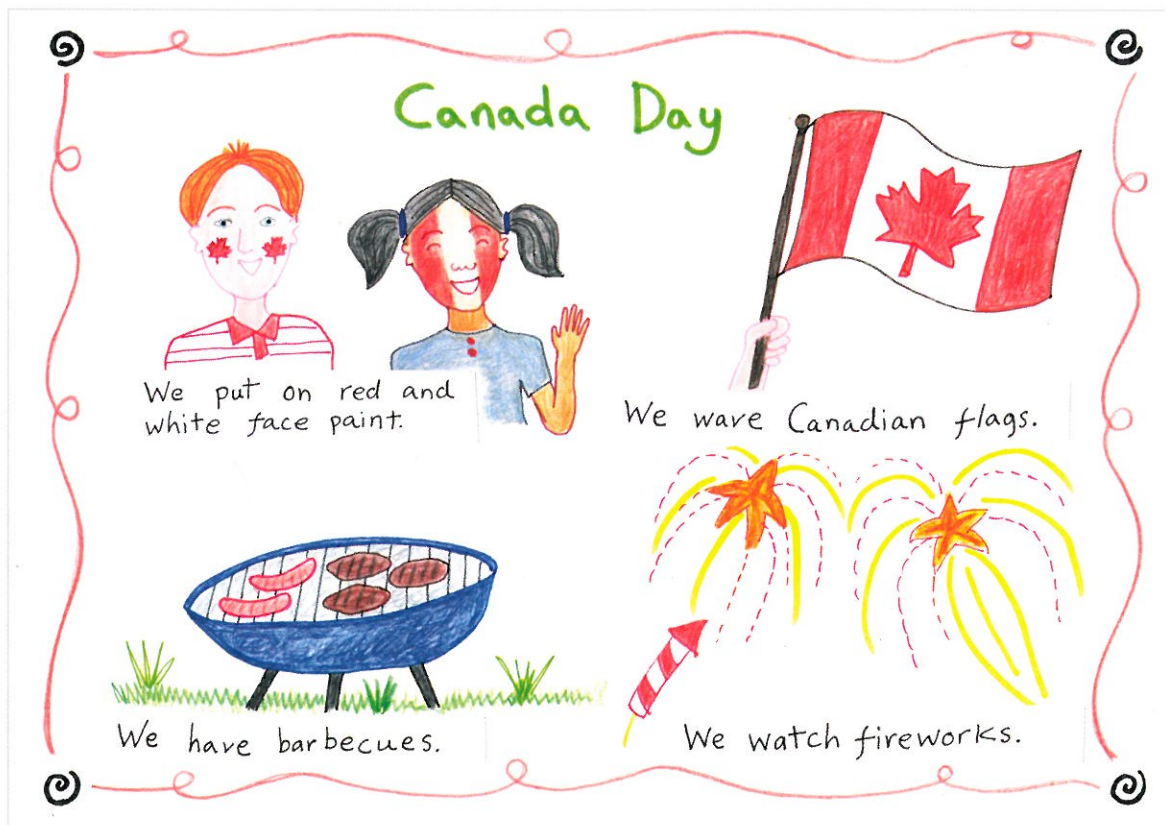 Canada Day
We put on red and
white face paint.
We wave Canadian flags.
We have barbecues.
We watch fireworks.